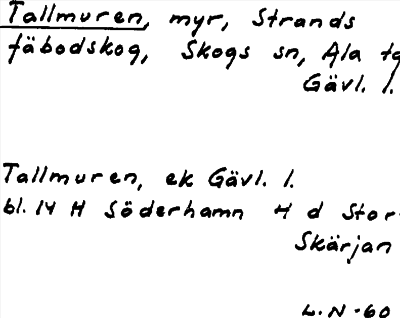 Tallmuren, myr, Strands
fäbodskog, Skogs sn, Ala tg
Gävl. l.
Tallmuren, ek Gävl. l.
bl. 14 H Söderhamn H d Stor-
Skärjan
L.N-60